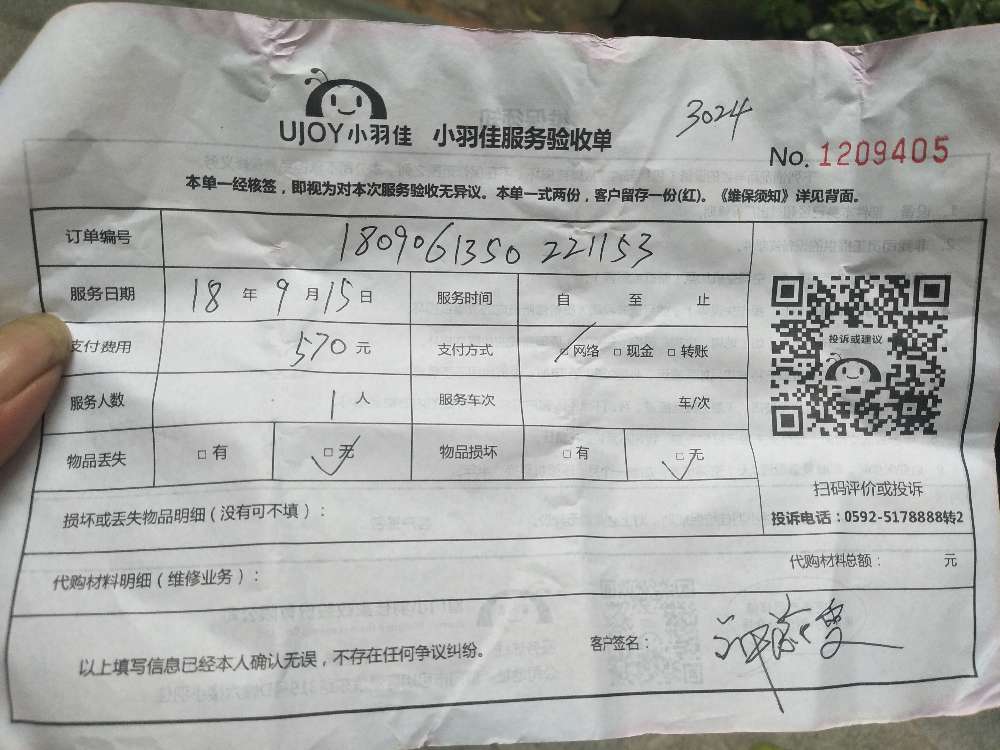 3024
UJOY小羽佳 小羽佳服务验收单
No. 1209405
本单一经核签，即视为对本次服务验收无异议。本单一式两份，客户留存一份(红)。《维保须知》详见背面。
订单编号 1809061350 221153
服务日期 18 年 9 月 15 日 服务时间 自 至 止
支付费用 570 元 支付方式 □网络 □现金 □转账
投诉或建议
服务人数 1 人 服务车次 车/次
物品丢失 □有 □无 物品损坏 □有 □无
扫码评价或投诉
损坏或丢失物品明细（没有可不填）：
投诉电话：0592-5178888转2
代购材料明细（维修业务）：
代购材料总额： 元
以上填写信息已经本人确认无误，不存在任何争议纠纷。
客户签名：